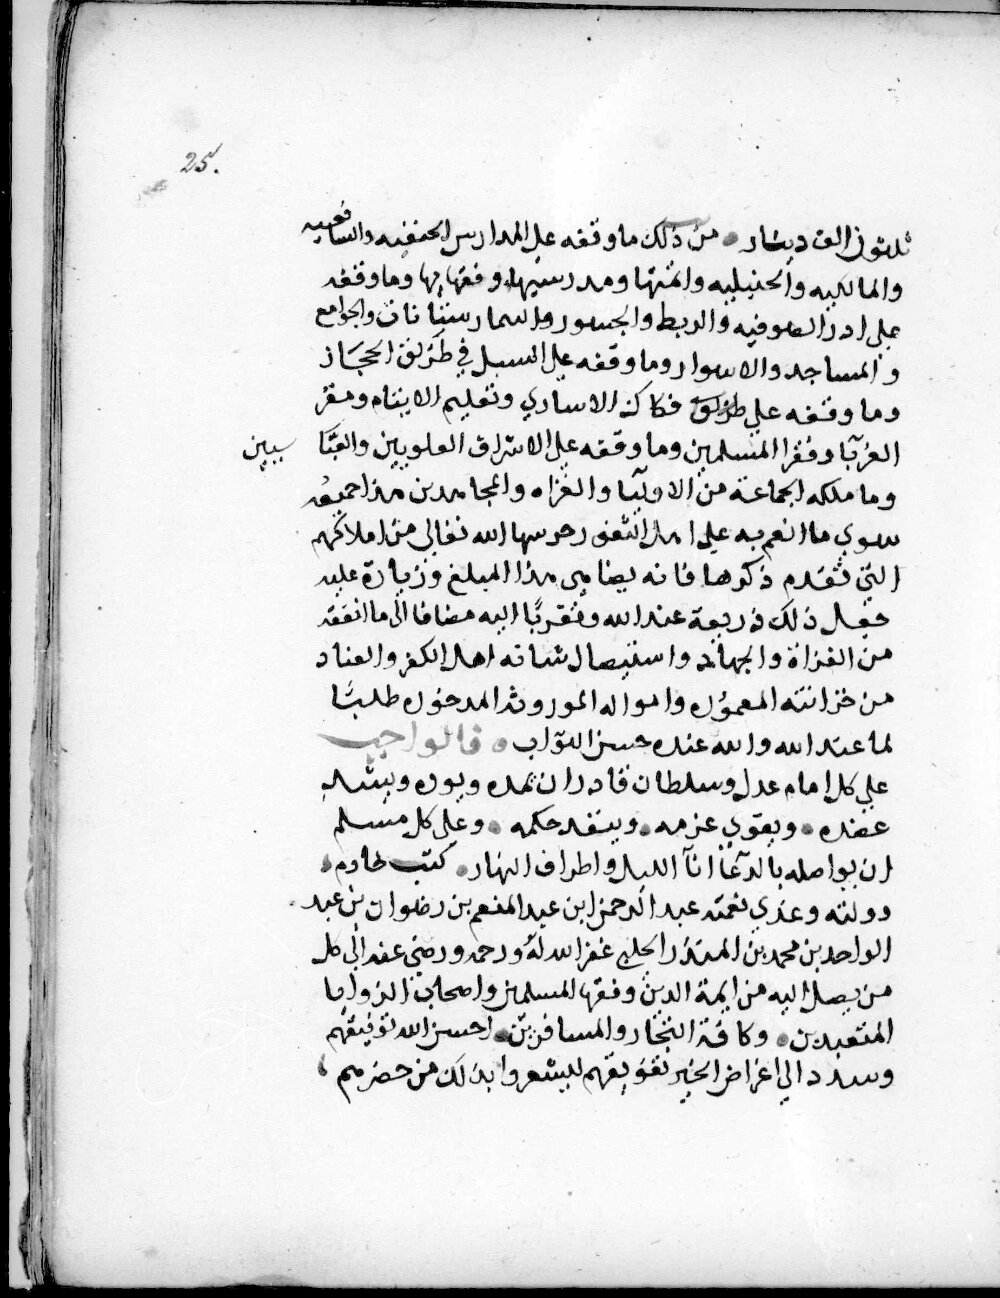 25.
ثلثون الف دينار ٠ من ذلك ما وقفه على المدارس الحنفيه والشافعيه
والمالكيه والحنبليه وائمتها ومدرسيها وفقهايها وما وقفه
على ادر الصوفيه والربط والجسور والبيمارستانات والجوامع
والمساجد والاسوار وما وقفه على السبل في طريق الحجاز
وما وقفه على فكاك الاساري وتعليم الايتام ومقر
الغربآ وفقرا المسلمين وما وقفه على الاشراف العلويين والعبا
سيين
وما ملكه لجماعة من الاوليآ والغزاه والمجاهدين هذا جميعه
سوي ما انعم به على اهل الثغور حرسها الله تعالى من املاكهم
التي تقدم ذكرها فانه يضاهي هذا المبلغ وزيادة عليه
جعل ذلك ذريعة عند الله وتقربًا اليه مضافا الى ما انفقه
من الغزاة والجهاد واستيصال شافه اهل الكفر والعناد
من خزانته المعموره وامواله الموروثه المدخوره طلبًا
لما عند الله والله عنده حسن الثواب ٠ فالواجب
على كل امام عدل وسلطان قادر ان يمده ويشد
عضده ٠ ويقوي عزمه ٠ وينفذ حكمه ٠ وعلى كل مسلم
ان يواصله بالدعآ انآ الليل واطراف النهار ٠ كتب خادم
دولته وغذي نعمته عبد الرحمن ابن عبد المنعم بن رضوان بن عبد
الواحد بن محمد بن المنذر الحلبي غفر الله له ورحمه ورضي عنه الى كل
من يصل اليه من ايمة الدين وفقها المسلمين واصحاب الزوايا
المتعبدين ٠ وكافة التجار والمسافرين ٠ احسن الله توفيقهم
وسدد الى اغراض الخير تفويقهم ليشعروا بذلك من حضرهم